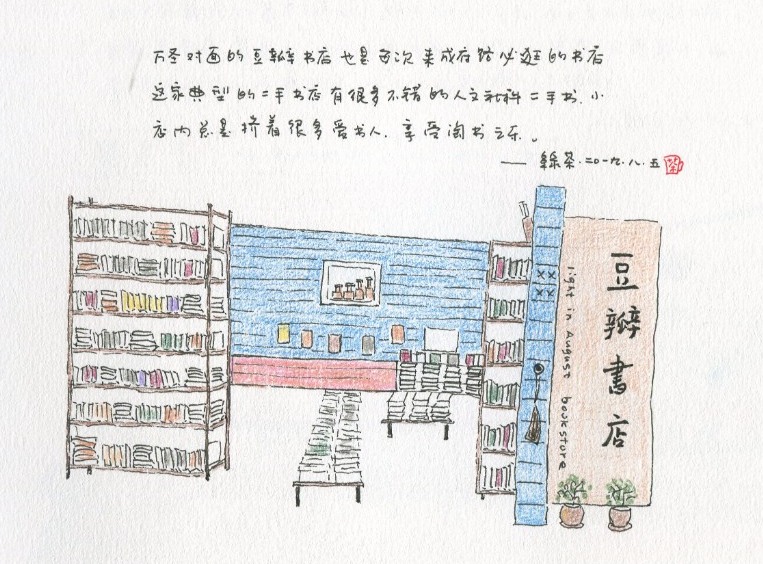 万圣对面的豆瓣书店也是每次来成府路必逛的书店
这家典型的二手书店有很多不错的人文社科二手书.小
店内总是挤着很多爱书人.享受淘书之乐。
—— 綠茶.二〇一九.八.五 茶
豆瓣書店
light in August bookstore